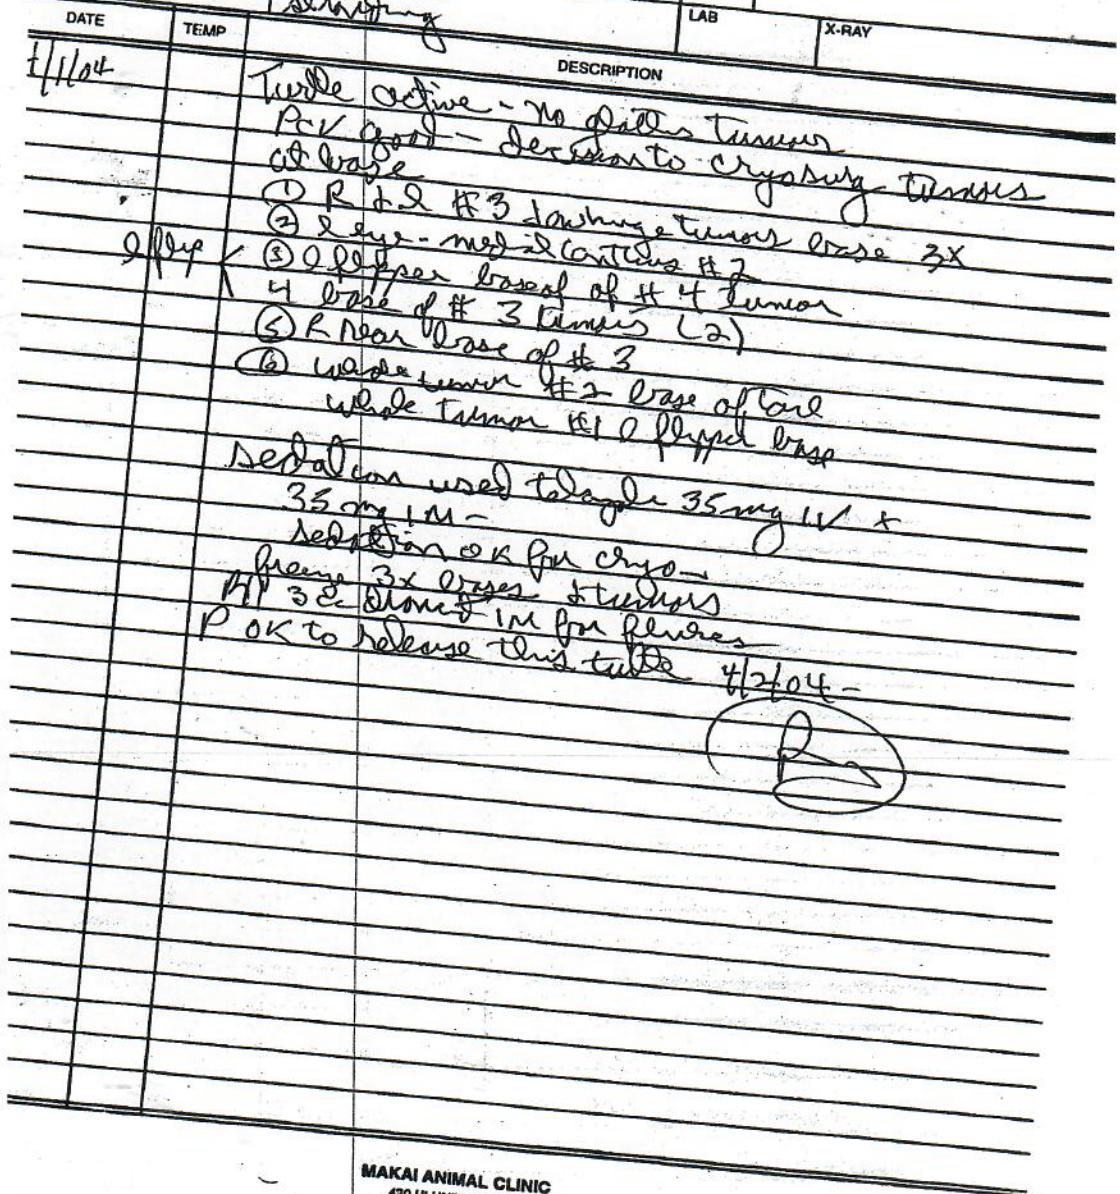 LAB
X-RAY
DATE
TEMP
DESCRIPTION
4/1/04
Turtle active - No glottis tumor
PCV good - decision to cryosurg tumors
at base
① R & L #3 tumors base 3X
② L eye - medial canthus #2
L flip
③ L flipper base of #4 tumor
4 base of # 3 tumors (2)
⑤ R rear base of # 3
⑥ whole tumor #2 base of tail
whole tumor #1 L flipper base
sedation used 35 mg IV +
35 mg IM -
sedation OK for cryo -
freeze 3x bases & tumors
3 cc IM for flukes
P OK to release this turtle 4/2/04 -
MAKAI ANIMAL CLINIC